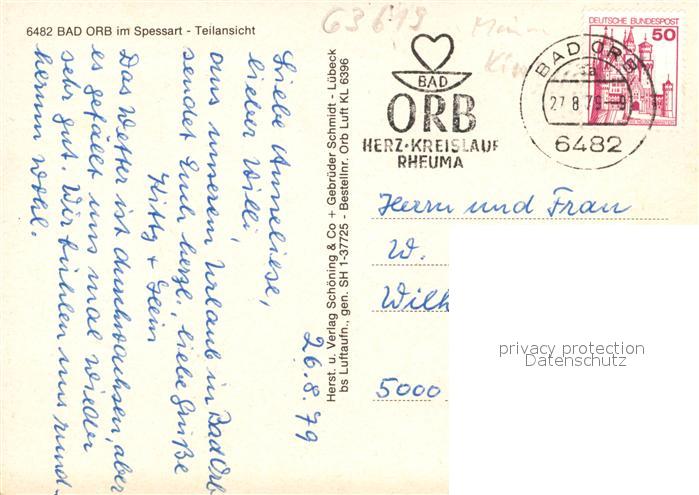 6482 BAD ORB im Spessart - Teilansicht
63619
DEUTSCHE BUNDESPOST
50
BAD ORB
27.8.79-9
6482
BAD
ORB
HERZ·KREISLAUF
RHEUMA
26.8.79
Liebe Anneliese,
lieber Willi,
aus unserem Urlaub in Bad Orb
sendet Euch herzl., liebe Grüße
Kitty + Hein
Das Wetter ist durchwachsen, aber
es gefällt uns mal wieder
sehr gut. Wir fühlen uns rund-
herum wohl.
Herst. u. Verlag Schöning & Co + Gebrüder Schmidt - Lübeck
bs Luftaufn., gen. SH 1-37725 - Bestellnr. Orb Luft KL 6396
Herrn und Frau
W.
Wilh
5000
privacy protection
Datenschutz